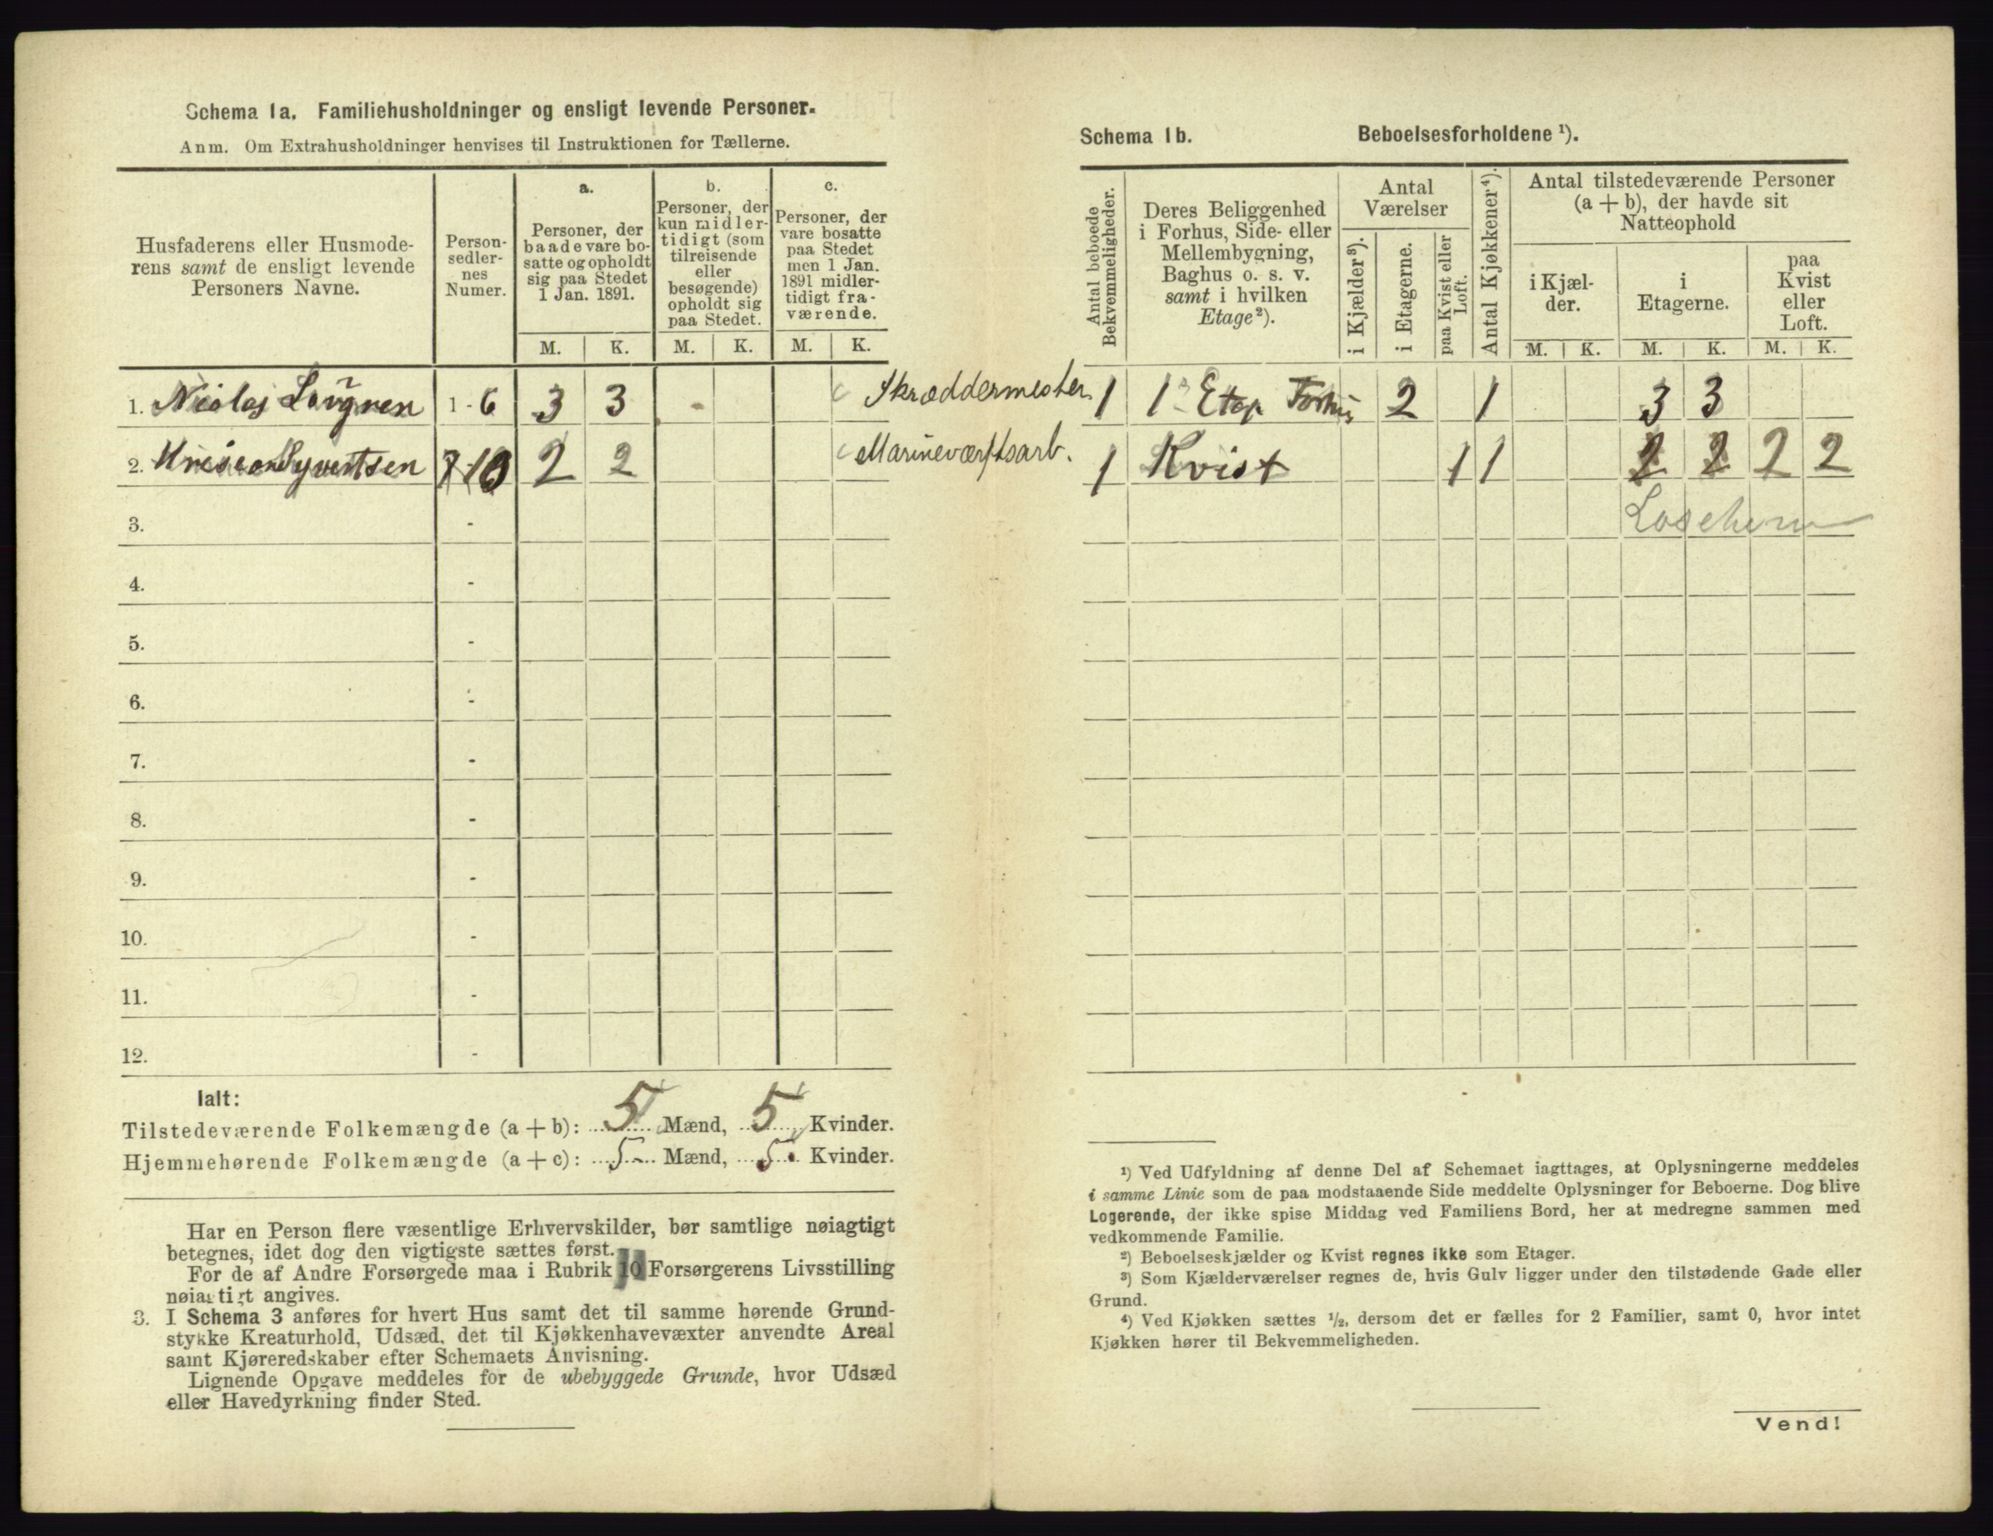 Schema 1a. Familiehusholdninger og ensligt levende Personer.
Anm. Om Extrahusholdninger henvises til Instruktionen for Tællerne.
Husfaderens eller Husmoderens samt de ensligt levende Personers Navne.
Personsedlernes Numer.
a.
Personer, der baade vare bosatte og opholdt sig paa Stedet 1 Jan. 1891.
b.
Personer, der kun midlertidigt (som tilreisende eller besøgende) opholdt sig paa Stedet.
c.
Personer, der vare bosatte paa Stedet men 1 Jan. 1891 midlertidigt fraværende.
M. K. M. K. M. K.
1. Nicolaj 1 - 6 3 3 Skræddermester
2. Syvertsen 7-10 2 2 Marineværftsarb.
3. -
4. -
5. -
6. -
7. -
8. -
9. -
10. -
11. -
12. -
Ialt:
Tilstedeværende Folkemængde (a + b): 5 Mænd, 5 Kvinder.
Hjemmehørende Folkemængde (a + c): 5 Mænd, 5 Kvinder.
Har en Person flere væsentlige Erhvervskilder, bør samtlige nøiagtigt
betegnes, idet dog den vigtigste sættes først.
For de af Andre Forsørgede maa i Rubrik 10 Forsørgerens Livsstilling
nøiagtigt angives.
3. I Schema 3 anføres for hvert Hus samt det til samme hørende Grund-
stykke Kreaturhold, Udsæd, det til Kjøkkenhavevæxter anvendte Areal
samt Kjøreredskaber efter Schemaets Anvisning.
Lignende Opgave meddeles for de ubebyggede Grunde, hvor Udsæd
eller Havedyrkning finder Sted.
Schema 1b. Beboelsesforholdene ¹).
Antal beboede Bekvemmeligheder.
Deres Beliggenhed i Forhus, Side- eller Mellembygning, Baghus o. s. v. samt i hvilken Etage²).
Antal Værelser
i Kjælder³).
i Etagerne.
paa Kvist eller Loft.
Antal Kjøkkener⁴).
Antal tilstedeværende Personer (a + b), der havde sit Natteophold
i Kjælder.
i Etagerne.
paa Kvist eller Loft.
M. K. M. K. M. K.
1 1 Etag Forhus 2 1 3 3
1 Kvist 1 1 2 2 2 2
¹) Ved Udfyldning af denne Del af Schemaet iagttages, at Oplysningerne meddeles
i samme Linie som de paa modstaaende Side meddelte Oplysninger for Beboerne. Dog blive
Logerende, der ikke spise Middag ved Familiens Bord, her at medregne sammen med
vedkommende Familie.
²) Beboelseskjælder og Kvist regnes ikke som Etager.
³) Som Kjælderværelser regnes de, hvis Gulv ligger under den tilstødende Gade eller
Grund.
⁴) Ved Kjøkken sættes ½, dersom det er fælles for 2 Familier, samt 0, hvor intet
Kjøkken hører til Bekvemmeligheden.
Vend!